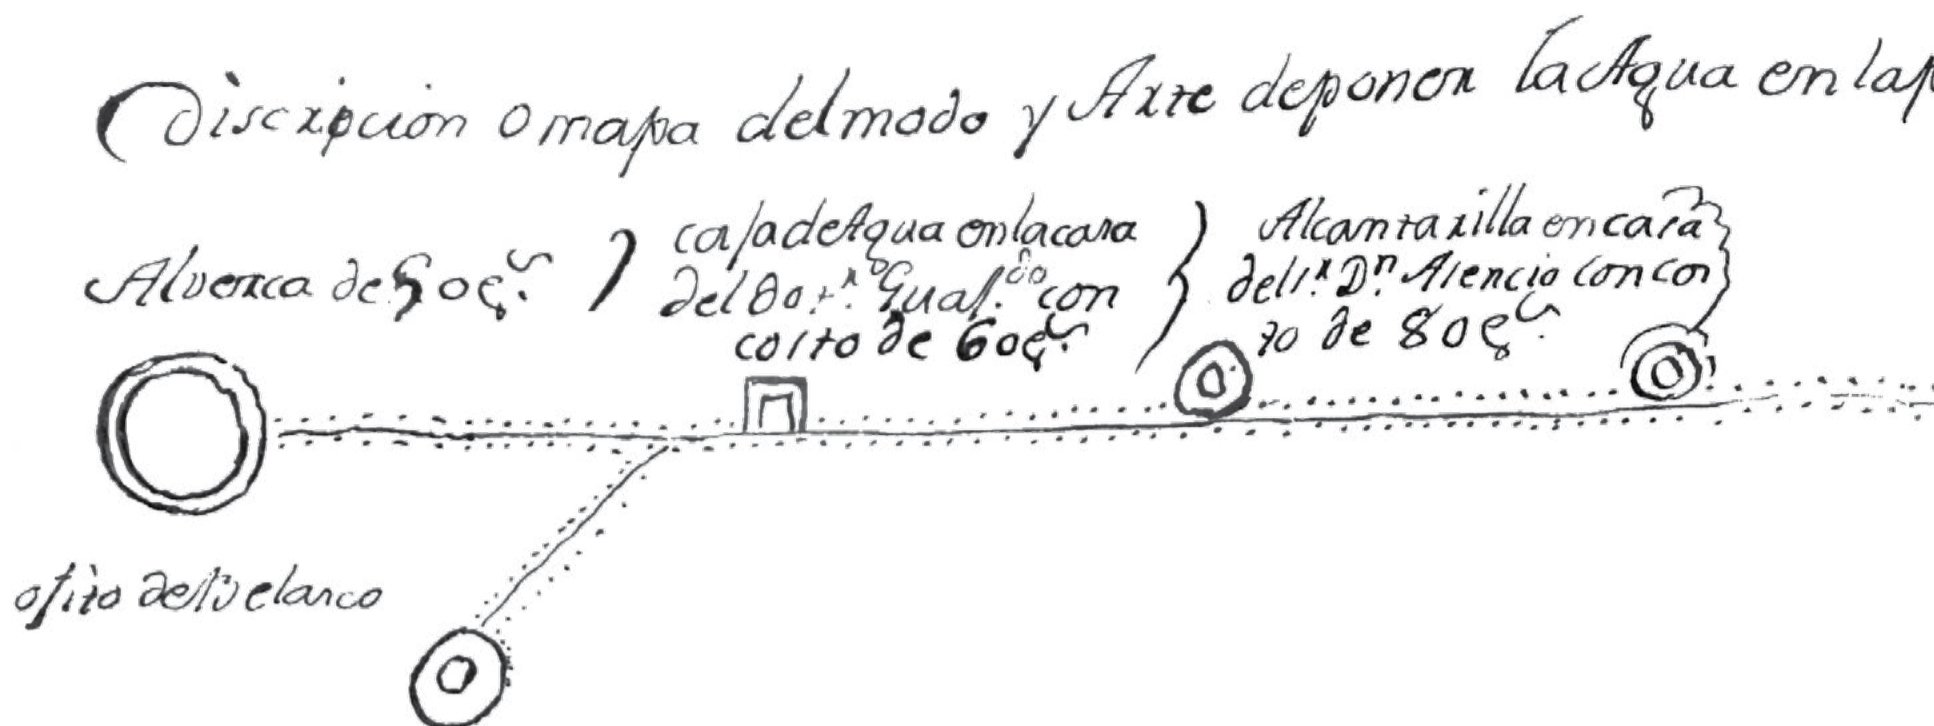 Discripcion o mapa del modo y Arte de poner la Agua en la
Alverca de 50 ps.
caja de Agua en la casa
del Dor. Gual.do con
costo de 60 ps.
Alcantarilla en casa
del Sr. Dn. Asencio con cos
to de 80 ps.
ojito de Velasco